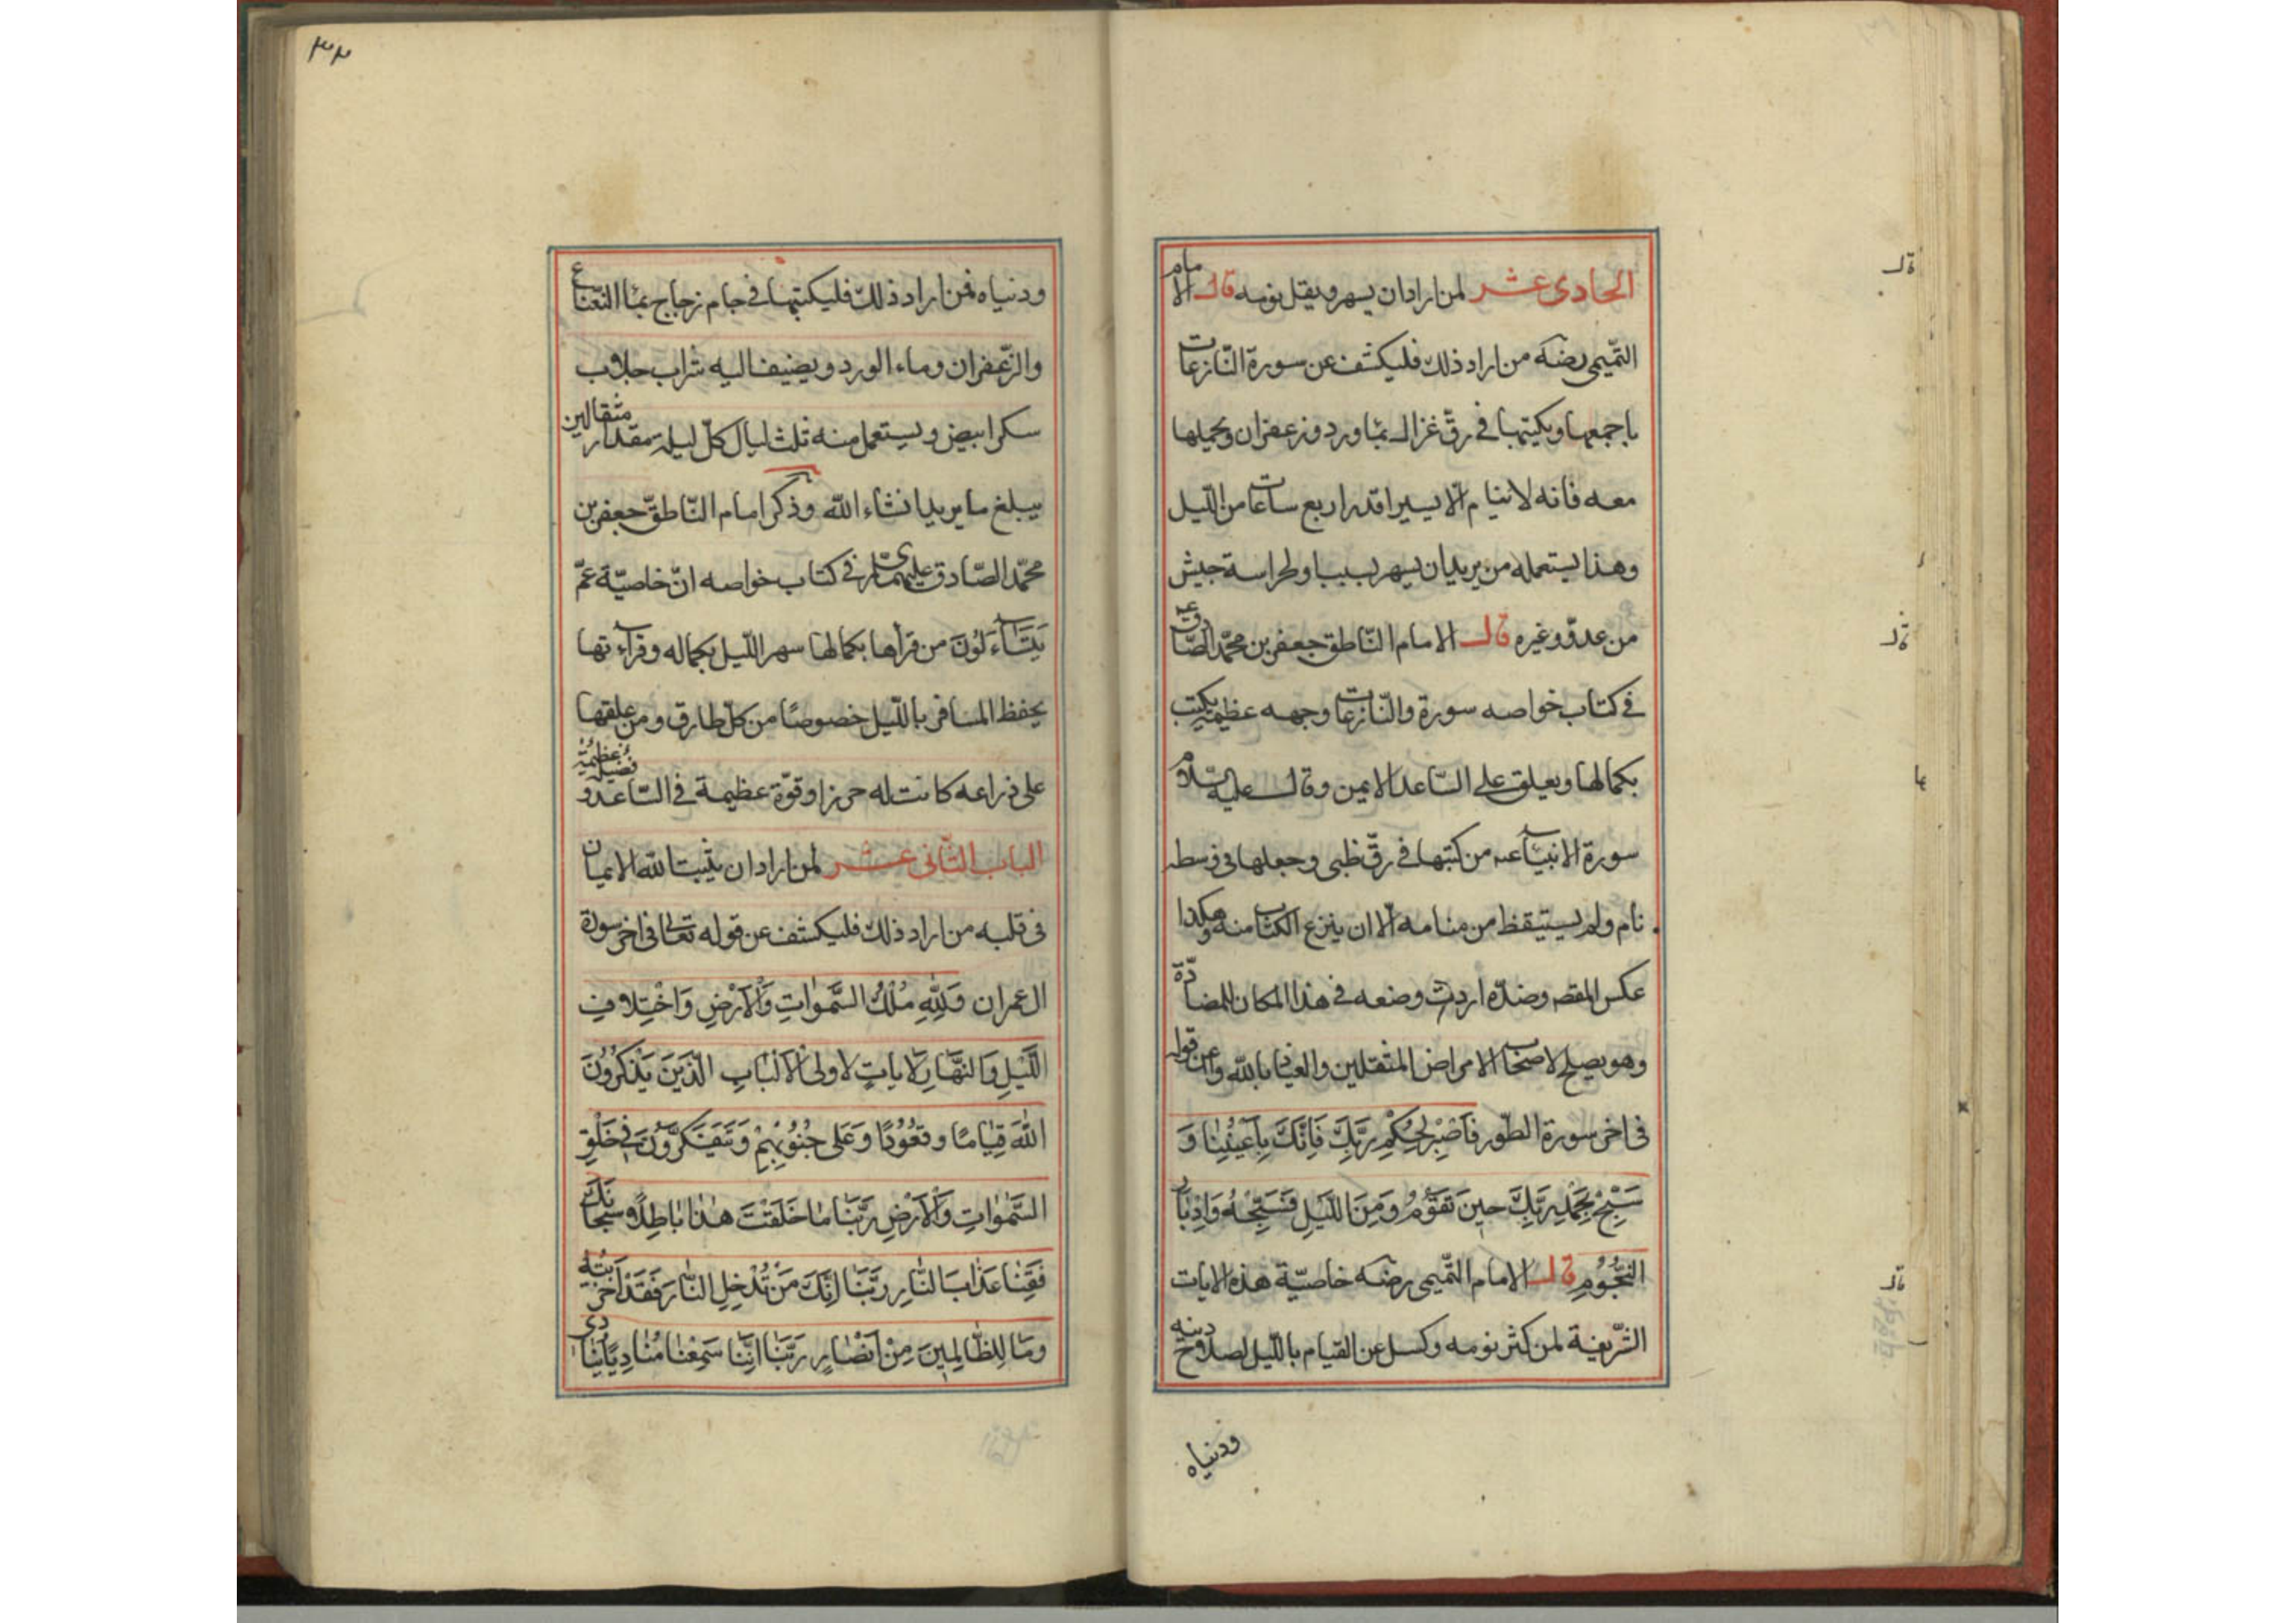 الحادى عشر لمن اراد ان يسهر ويقل نومه قال الامام
التّميمى رضه من اراد ذلك فليكشف عن سورة النّازعات
باجمعها ويكتبها فى رقّ غزال بماورد وزعفران ويحملها
معه فانه لا ينام الّا يسيرا قدر اربع ساعات من اللّيل
وهذا يستعمله من يريد ان يسهر بسبب او لحراسة جيش
من عدوّ وغيره قال الامام النّاطق جعفر بن محمّد الصّادق
فى كتاب خواصه سورة والنّازعات وجهه عظيمة يكتب
بكمالها ويعلق على السّاعد الايمن وقال عليه السّلام
سورة الانبياء من كتبها فى رقّ ظبى وجعلها فى وسطه
نام ولم يستيقظ من منامه الّا ان ينزع الكتاب منه وهكذا
عكس المقصد وضدّه اردت وضعه فى هذا المكان للمضادّة
وهو يصلح لاصحاب الامراض المثقلين والعياذ بالله وعن قوله
فى اخر سورة الطّور فَاصْبِرْ لِحُكْمِ رَبِّكَ فَاِنَّكَ بِاَعْيُنِنَا وَ
سَبِّحْ بِحَمْدِ رَبِّكَ حِينَ تَقُومُ وَمِنَ اللَّيْلِ فَسَبِّحْهُ وَاِدْبَارَ
النُّجُومِ قال الامام التّميمى رضه خاصيّة هذه الايات
الشّريفة لمن كثر نومه وكسل عن القيام باللّيل لصلاح دينه
ودنياه
٣٢
ودنياه فمن اراد ذلك فليكتبها فى جام زجاج بماء النّعناع
والزّعفران وماء الورد ويضيف اليه شراب جلاب
سكر ابيض ويستعمل منه ثلث ليال كلّ ليلة بمقدار مثقالين
يبلغ ما يريد انشاء الله وذكر امام النّاطق جعفر بن
محمّد الصّادق عليهما فى كتاب خواصه انّ خاصيّة عمّ
يَتَسَاءَلُونَ من قرأها بكمالها سهر اللّيل بكماله وقراءتها
يحفظ المسافر باللّيل خصوصًا من كلّ طارق ومن علقها
على ذراعه كانت له حرزا وقوّة عظيمة فى السّاعد وفضيلة عظيمة
الباب الثّانى عشر لمن اراد ان يثبت الله الايمان
فى قلبه من اراد ذلك فليكشف عن قوله تعالى فى اخر سورة
ال عمران وَلِلّٰهِ مُلْكُ السَّمٰوَاتِ وَالْاَرْضِ وَاخْتِلَافِ
اللَّيْلِ وَالنَّهَارِ لَاٰيَاتٍ لِاُولِى الْاَلْبَابِ الَّذِينَ يَذْكُرُونَ
اللهَ قِيَامًا وقُعُودًا وَعَلى جُنُوبِهِمْ وَيَتَفَكَّرُونَ فِى خَلْقِ
السَّمٰوَاتِ وَالْاَرْضِ رَبَّنَا مَا خَلَقْتَ هٰذَا بَاطِلًا سُبْحَانَكَ
فَقِنَا عَذَابَ النَّارِ رَبَّنَا اِنَّكَ مَنْ تُدْخِلِ النَّارَ فَقَدْ اَخْزَيْتَهُ
وَمَا لِلظَّالِمِينَ مِنْ اَنْصَارٍ رَبَّنَا اِنَّنَا سَمِعْنَا مُنَادِيًا يُنَادِى